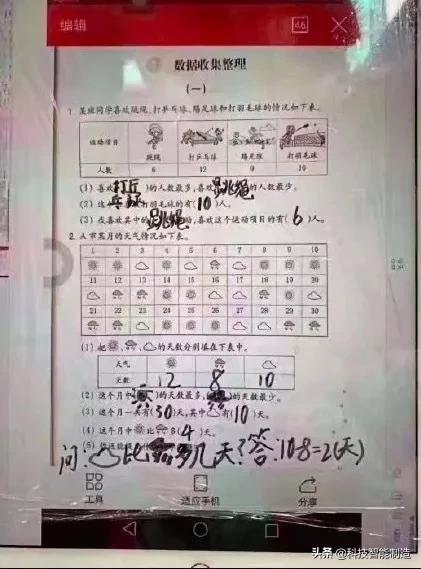 编辑
46
数据收集整理
(一)
1. 某班同学喜欢跳绳、打乒乓球、踢足球和打羽毛球的情况如下表。
运动项目 跳绳 打乒乓球 踢足球 打羽毛球
人数 6 12 9 10
(1) 喜欢(打乒乓球)的人数最多,喜欢(跳绳)的人数最少。
(2) 喜欢打羽毛球的有(10)人。
(3) 我喜欢其中的(跳绳)运动,喜欢这个运动项目的有(6)人。
2. 人市某月的天气情况如下表。
1 2 3 4 5 6 7 8 9 10
11 12 13 14 15 16 17 18 19 20
21 22 23 24 25 26 27 28 29 30
(1) 把 、 、 的天数分别填在下表中。
天气
天数 12 8 10
(2) 这个月中( )的天数最多,( )的天数最少。
(3) 这个月一共有(30)天,其中 有(10)天。
(4) 这个月中 比 多(4)天。
(5)
问: 比 多几天?答:10-8=2(天)
工具 适应手机 分享
头条 @科技智能制造